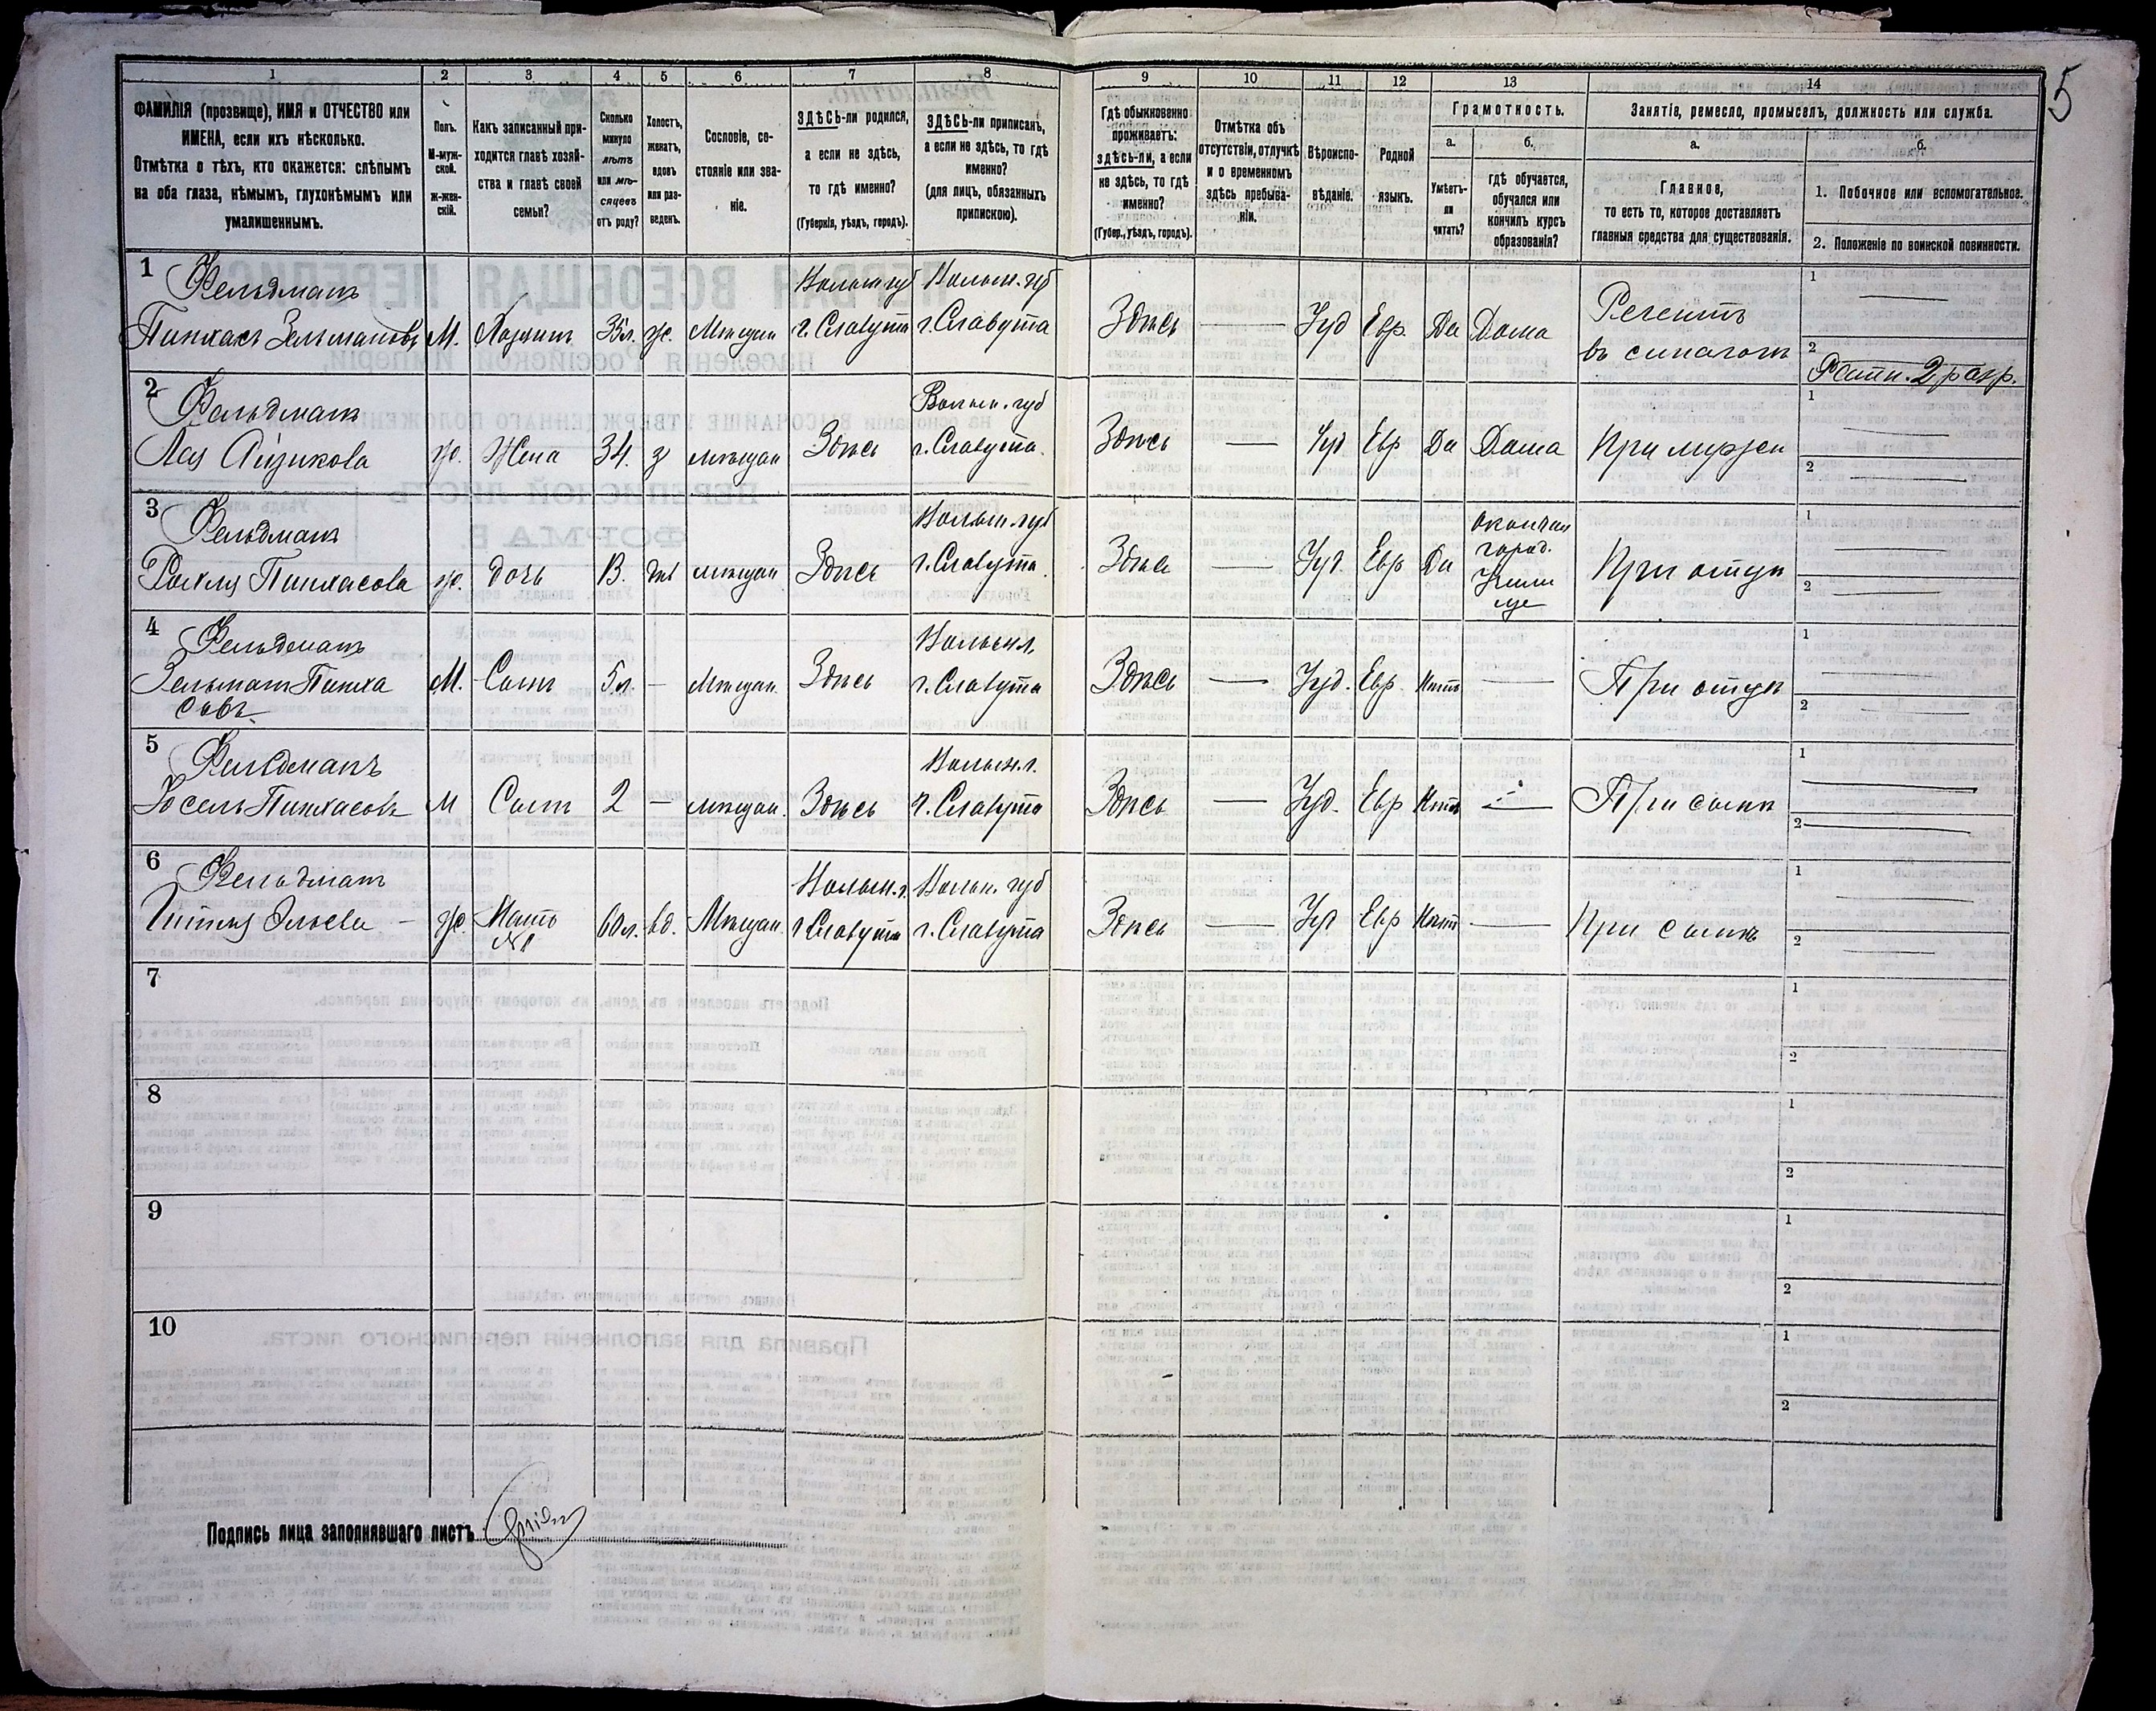 5
1 2 3 4 5 6 7 8 9 10 11 12 13 14
ФАМИЛІЯ (прозвище), ИМЯ и ОТЧЕСТВО или
ИМЕНА, если ихъ нѣсколько.
Отмѣтка о тѣхъ, кто окажется: слѣпымъ
на оба глаза, нѣмымъ, глухонѣмымъ или
умалишеннымъ.
Полъ.
М-муж-
ской.
Ж-жен-
скій.
Какъ записанный при-
ходится главѣ хозяй-
ства и главѣ своей
семьи?
Сколько
минуло
лѣтъ
или мѣ-
сяцевъ
отъ роду?
Холостъ,
женатъ,
вдовъ
или раз-
веденъ.
Сословіе, со-
стояніе или зва-
ніе.
ЗДѢСЬ-ли родился,
а если не здѣсь,
то гдѣ именно?
(Губернія, уѣздъ, городъ).
ЗДѢСЬ-ли приписанъ,
а если не здѣсь, то гдѣ
именно?
(для лицъ, обязанныхъ
припискою).
Гдѣ обыкновенно
проживаетъ:
здѣсь-ли, а если
не здѣсь, то гдѣ
именно?
(Губер., уѣздъ, городъ).
Отмѣтка объ
отсутствіи, отлучкѣ
и о временномъ
здѣсь пребыва-
ніи.
Вѣроиспо-
вѣданіе.
Родной
языкъ.
Грамотность.
а.
Умѣетъ-
ли
читать?
б.
гдѣ обучается,
обучался или
кончилъ курсъ
образованія?
Занятіе, ремесло, промыселъ, должность или служба.
а.
Главное,
то есть то, которое доставляетъ
главныя средства для существованія.
б.
1. Побочное или вспомогательное.
2. Положеніе по воинской повинности.
1 Фельдманъ
Пинхасъ Зельмановъ М. Хозяинъ 35 л. ж. Мѣщан
Волын губ
г. Славута
Волын. губ
г. Славута
Здѣсь — Іуд Евр. Да Дома
Регентъ
въ синагогѣ
1 —
2 Ратн. 2 разр.
2 Фельдманъ
Лея Айзикова ж. Жена 34. з мѣщан Здѣсь
Волын. губ
г. Славута.
Здѣсь — Іуд Евр Да Дома При мужѣ
1 —
2 —
3 Фельдманъ
Рахля Пинхасова ж. дочь 13. мѣщан Здѣсь
Волын. губ
г. Славута.
Здѣсь — Іуд Евр Да
окончил
город.
Учили
ще
При отцѣ
1 —
2 —
4 Фельдманъ
Зельманъ Пинха
совъ
М. Сынъ 5 л. — Мѣщан. Здѣсь
Волын г.
г. Славута
Здѣсь — Іуд. Евр. Нѣтъ — При отцѣ
1 —
2 —
5 Фельдманъ
Іосель Пинхасовъ М Сынъ 2 — мѣщан. Здѣсь
Волын. г.
г. Славута
Здѣсь — Іуд. Евр Нѣтъ — При сынѣ
1 —
2 —
6 Фельдманъ
Гитля Эльева — ж. Мать
№1
60 л. вд. Мѣщан.
Волын. г.
г Славута
Волын. губ
г. Славута
Здѣсь — Іуд Евр Нѣтъ — При сынѣ
1 —
2 —
7 1
2
8 1
2
9 1
2
10 1
2
Подпись лица заполнявшаго листъ